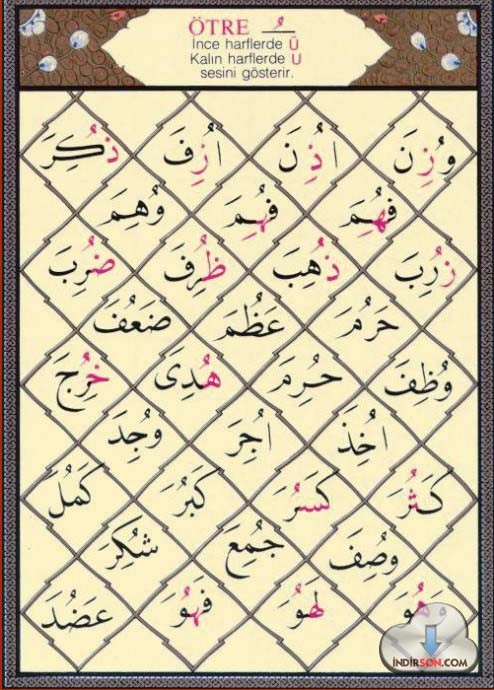 ÖTRE ـُ
İnce harflerde Ü
Kalın harflerde U
sesini gösterir.
وُزِنَ اُذِنَ اُزِفَ ذُكِرَ
فَهُمَ فُهِمَ وُهِمَ
زُرِبَ ذُهِبَ ظُرِفَ ضُرِبَ
حَرُمَ عَظُمَ ضَعُفَ
وُظِفَ حُرِمَ هُدِىَ خُرِجَ
اُخِذَ اُجِرَ وُجِدَ
كَثُرَ كَسُرَ كَبُرَ كَمُلَ
وُصِفَ جُمِعَ شُكِرَ
وَهُوَ لَهُوَ فَهُوَ عَضُدَ
İNDİRSON.COM